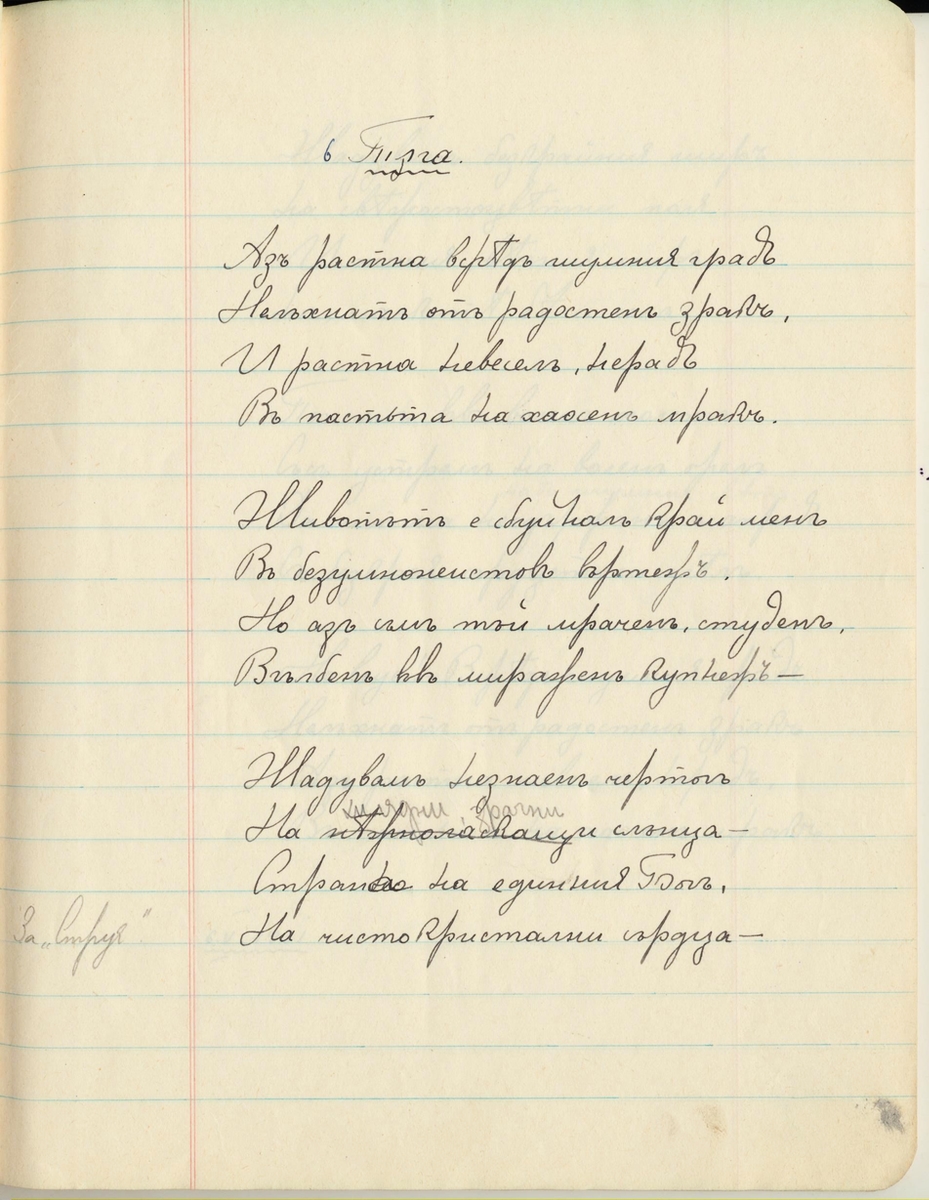 6 Тъга.
Азъ растна врѣдъ шумния градъ
Нелъхнатъ отъ радостенъ зракъ,
И растна невеселъ, нерадъ
Въ пастьта на хаосенъ мракъ.
Животътъ е обуйналъ край менъ
Въ безумнонеистовъ въртежъ.
Но азъ съмъ той мраченъ, студенъ,
Вгълбенъ въ миражен купнежъ —
Жадувамъ незнаенъ чертогъ
хилядни, зрачни
На нѣжноласкащи слънца —
Страна на единния Богъ,
За „Струя"
На чистокристални сърдца —